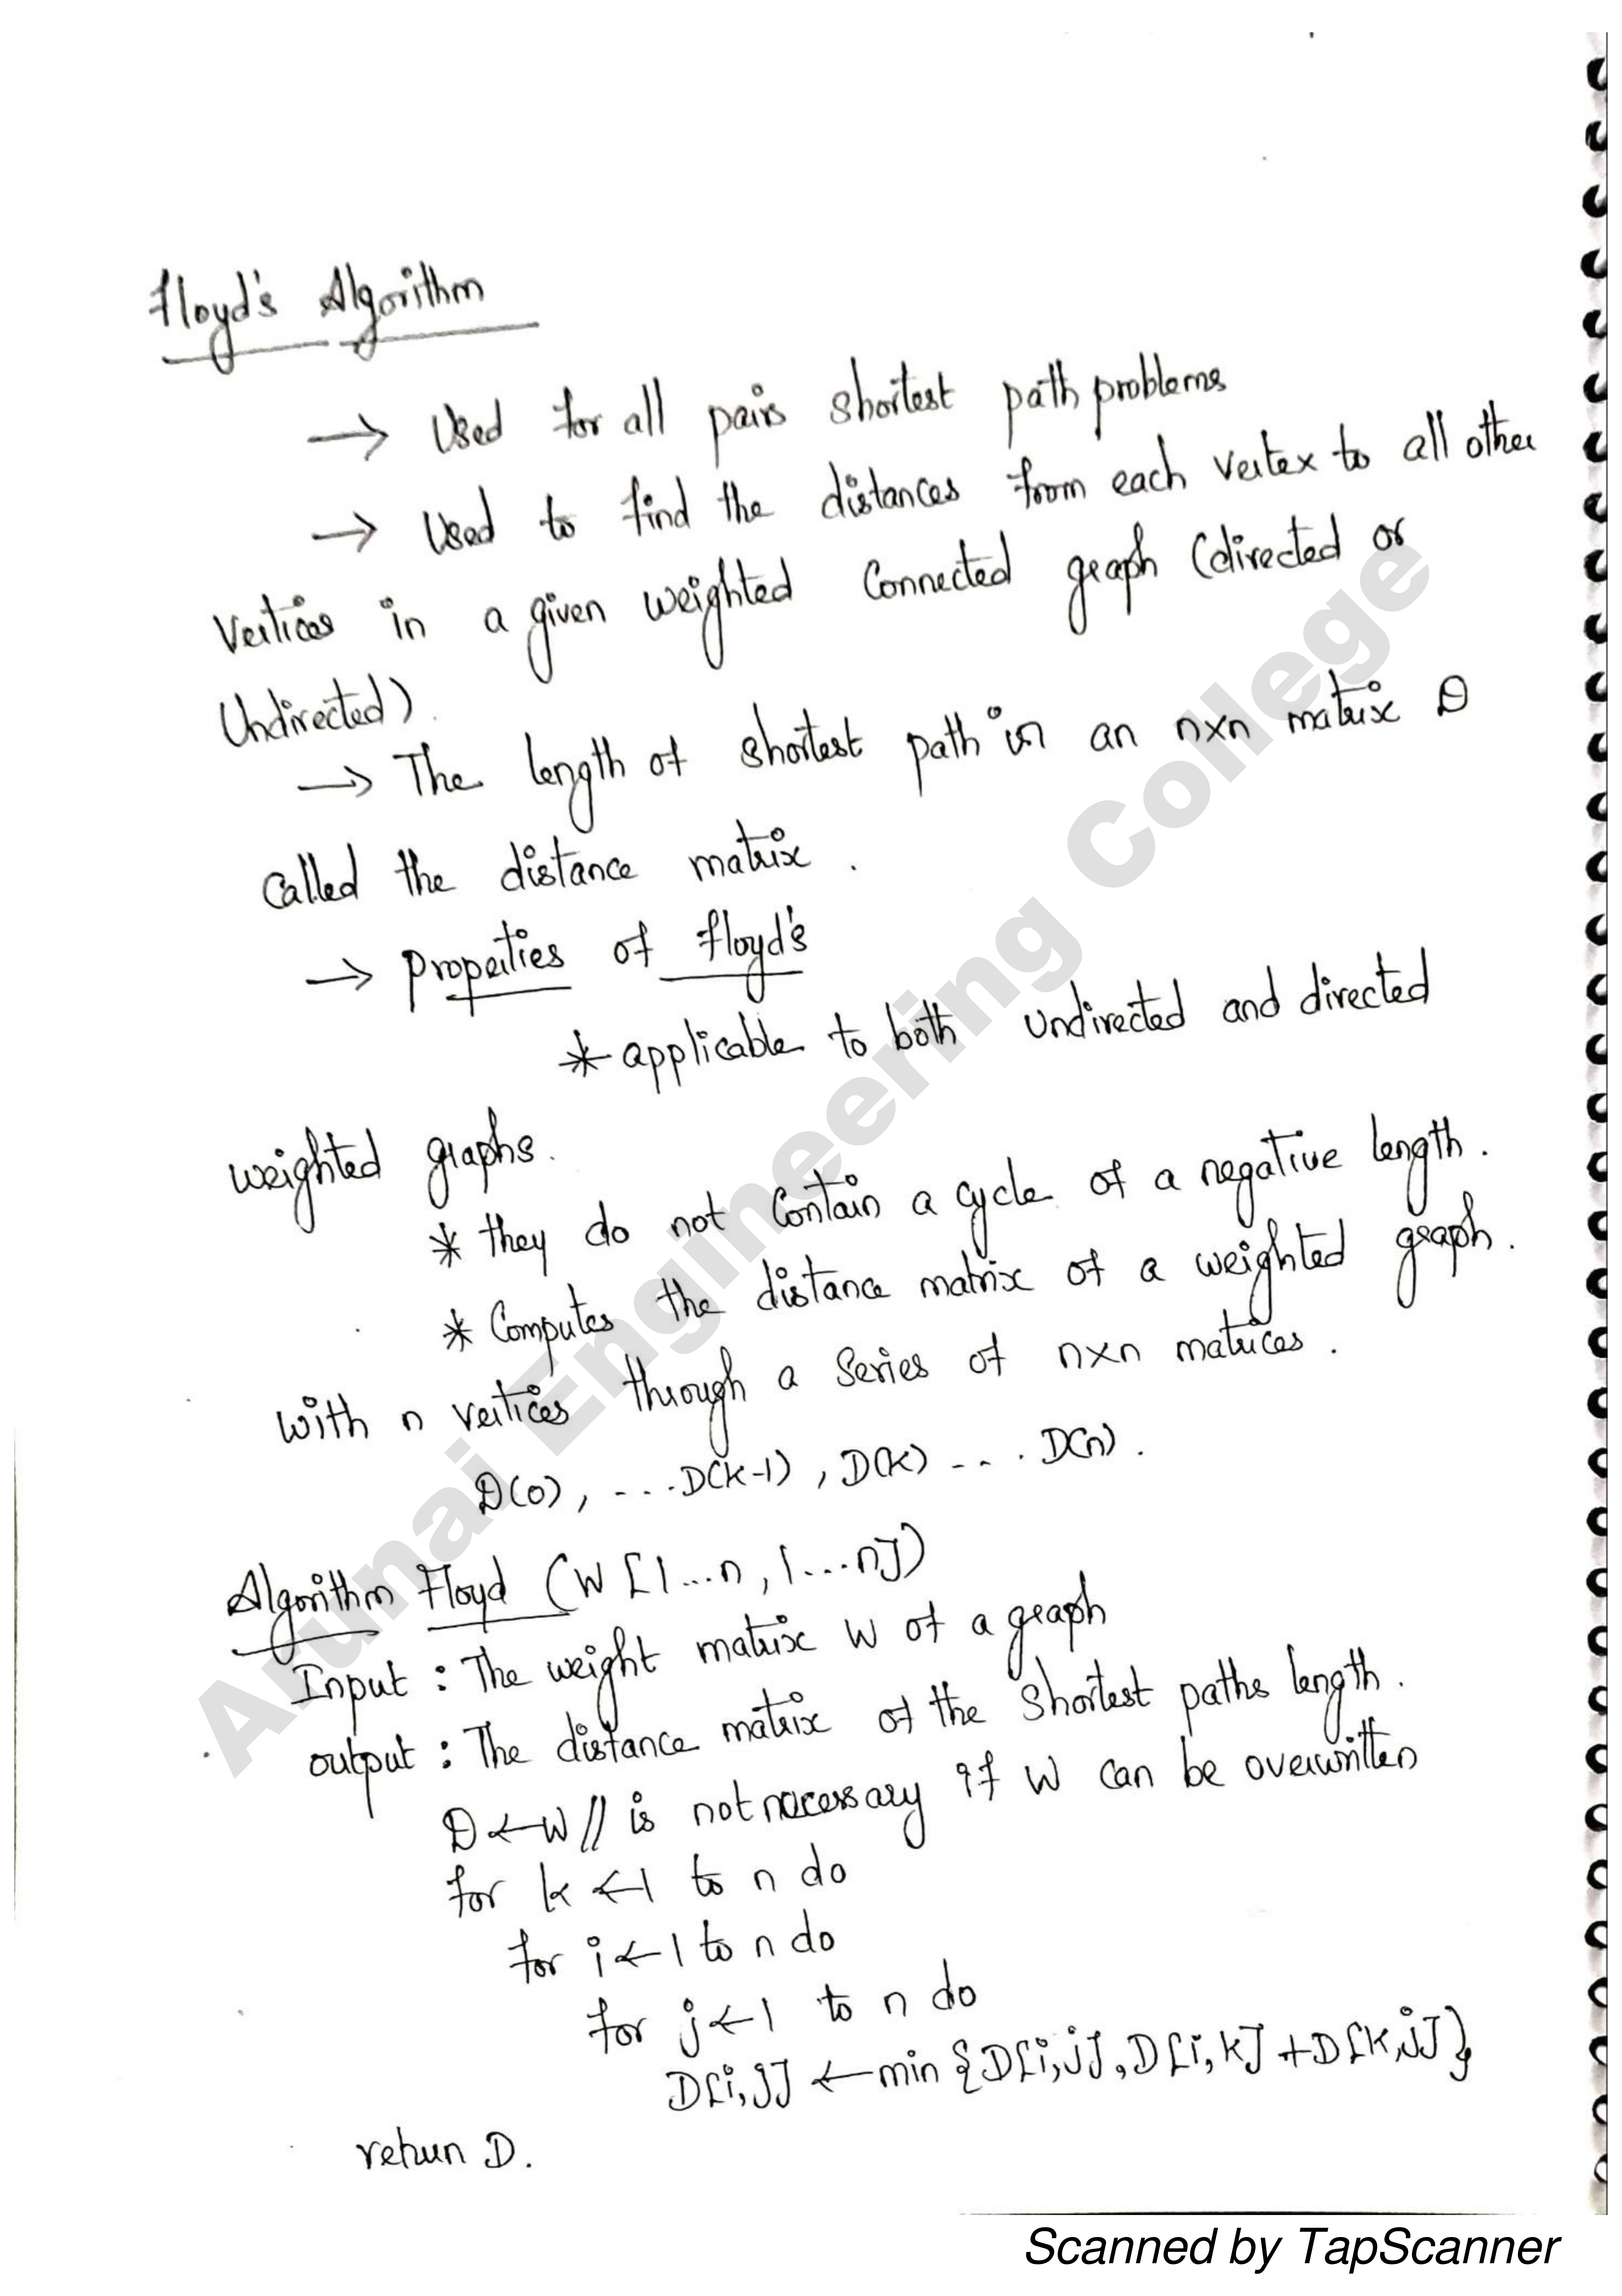 Floyd's Algorithm
→ Used for all pairs shortest path problems
→ Used to find the distances from each vertex to all other
Vertices in a given weighted Connected graph (directed or
Undirected).
→ The length of shortest path in an nxn matrix D
Called the distance matrix.
→ Properties of Floyd's
* applicable to both undirected and directed
weighted graphs.
* they do not Contain a cycle of a negative length.
* Computes the distance matrix of a weighted graph.
with n vertices through a series of nxn matrices.
D(0), ....D(k-1), D(k) .... D(n).
Algorithm Floyd (W [1...n, 1...n])
Input : The weight matrix W of a graph
output : The distance matrix of the Shortest paths length.
D ← W // is not necessary if W can be overwritten
for k ← 1 to n do
for i ← 1 to n do
for j ← 1 to n do
D[i,j] ← min {D[i,j], D[i,k] + D[k,j]}
return D.
Arunai Engineering College
Scanned by TapScanner